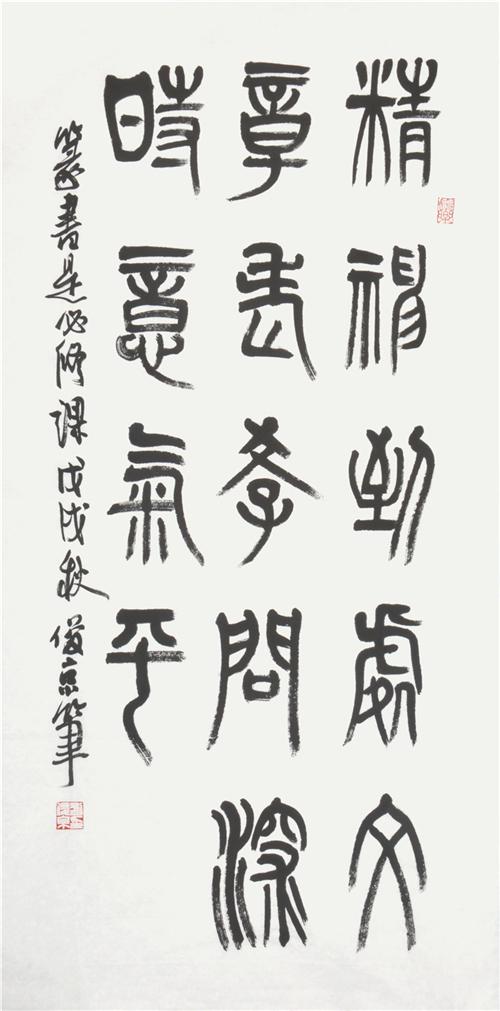 精神到處文
章老學問深
時意氣平
篆書是必修課戊戌秋京筆